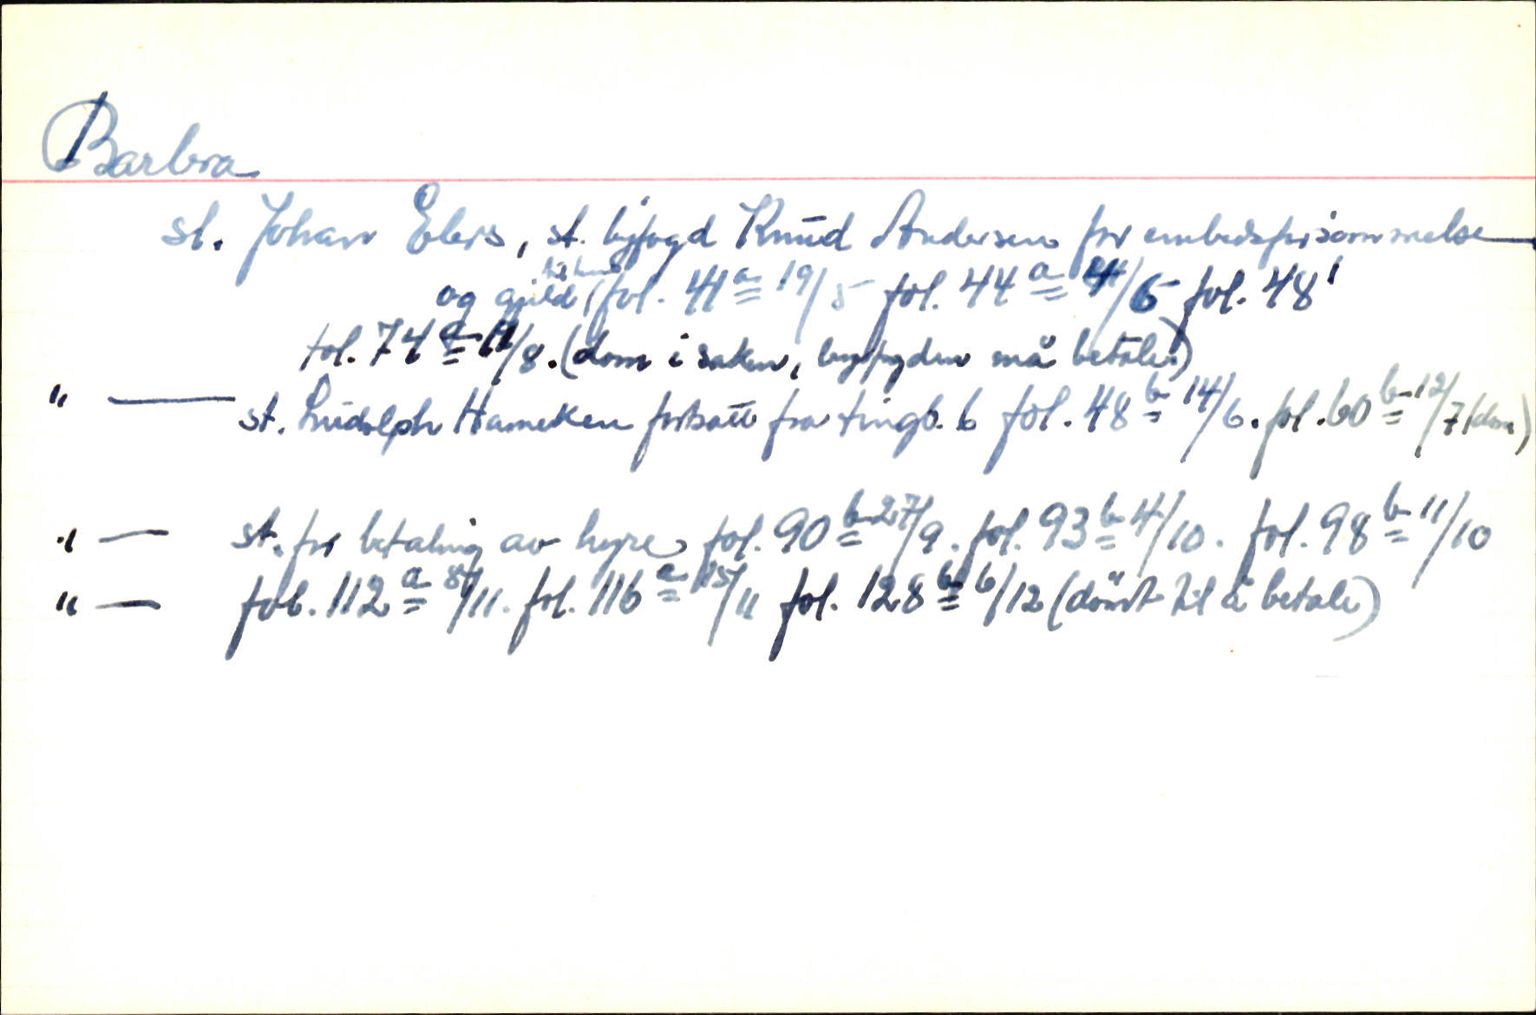 Barbra
sl. Johan Ehlers, st. byfogd Knud Andersen for embedsforsømmelse
og gjeld (fol. 41 a 19/5 fol. 44 a /6 fol. 48
fol. 74 a /8. (dom i saken, byfogden må betale)
" — st. Ludolph Hameken fortsatt fra tingb. 6 fol. 48 b 14/6. fol. 60 b 12/7 (dom)
" — st. for betaling av hyre fol. 90 b 27/9. fol. 93 b 4/10. fol. 98 b 11/10
" — fol. 112 a 8/11. fol. 116 a 15/11 fol. 128 b 6/12 (dømt til å betale)